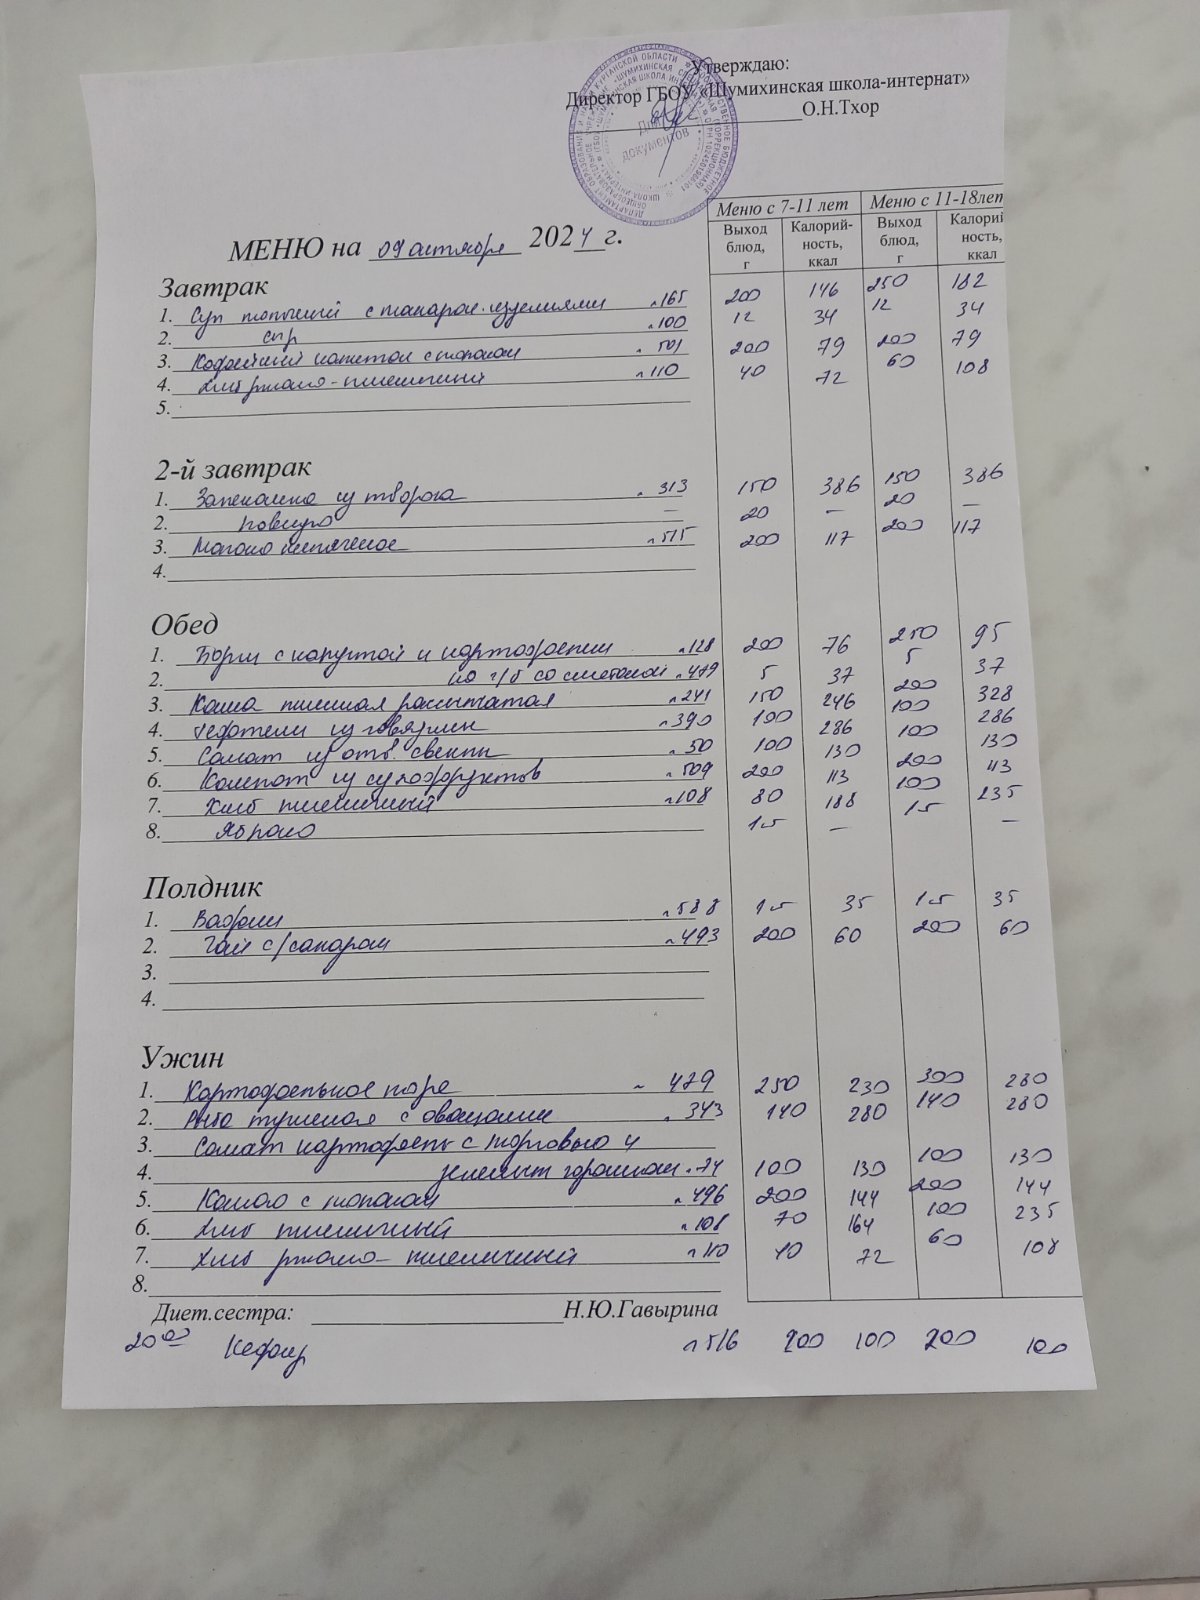 Утверждаю:
Директор ГБОУ «Шумихинская школа-интернат»
О.Н.Тхор
Для документов
Меню с 7-11 лет Меню с 11-18лет
Выход блюд, г Калорий-ность, ккал Выход блюд, г Калорий ность, ккал
МЕНЮ на 09 октября 2024 г.
Завтрак
1. Суп молочный с макарон. изделиями №165 200 146 250 182
2. сыр №100 12 34 12 34
3. Кофейный напиток с молоком №501 200 79 200 79
4. Хлеб ржано-пшеничный №110 40 72 60 108
5.
2-й завтрак
1. Запеканка из творога № 313 150 386 150 386
2. Повидло — 20 — 20 —
3. Молоко кипяченое №515 200 117 200 117
4.
Обед
1. Борщ с капустой и картофелем №128 200 76 250 95
2. на м/б со сметаной №479 5 37 5 37
3. Каша пшенная рассыпчатая №241 150 246 200 328
4. Тефтели из говядины №390 100 286 100 286
5. Салат из отв. свеклы №50 100 130 100 130
6. Компот из сухофруктов №509 200 113 200 113
7. Хлеб пшеничный №108 80 188 100 235
8. Яблоко 15 — 15 —
Полдник
1. Вафли №588 15 35 15 35
2. Чай с/сахаром №493 200 60 200 60
3.
4.
Ужин
1. Картофельное пюре № 429 250 230 300 280
2. Рыба тушеная с овощами № 343 140 280 140 280
3. Салат картофель с морковью и
4. зеленым горошком №74 100 130 100 130
5. Какао с молоком №496 200 144 200 144
6. Хлеб пшеничный №108 70 164 100 235
7. Хлеб ржано-пшеничный №110 40 72 60 108
8.
Диет.сестра: Н.Ю.Гавырина
20 00 Кефир №516 200 100 200 100